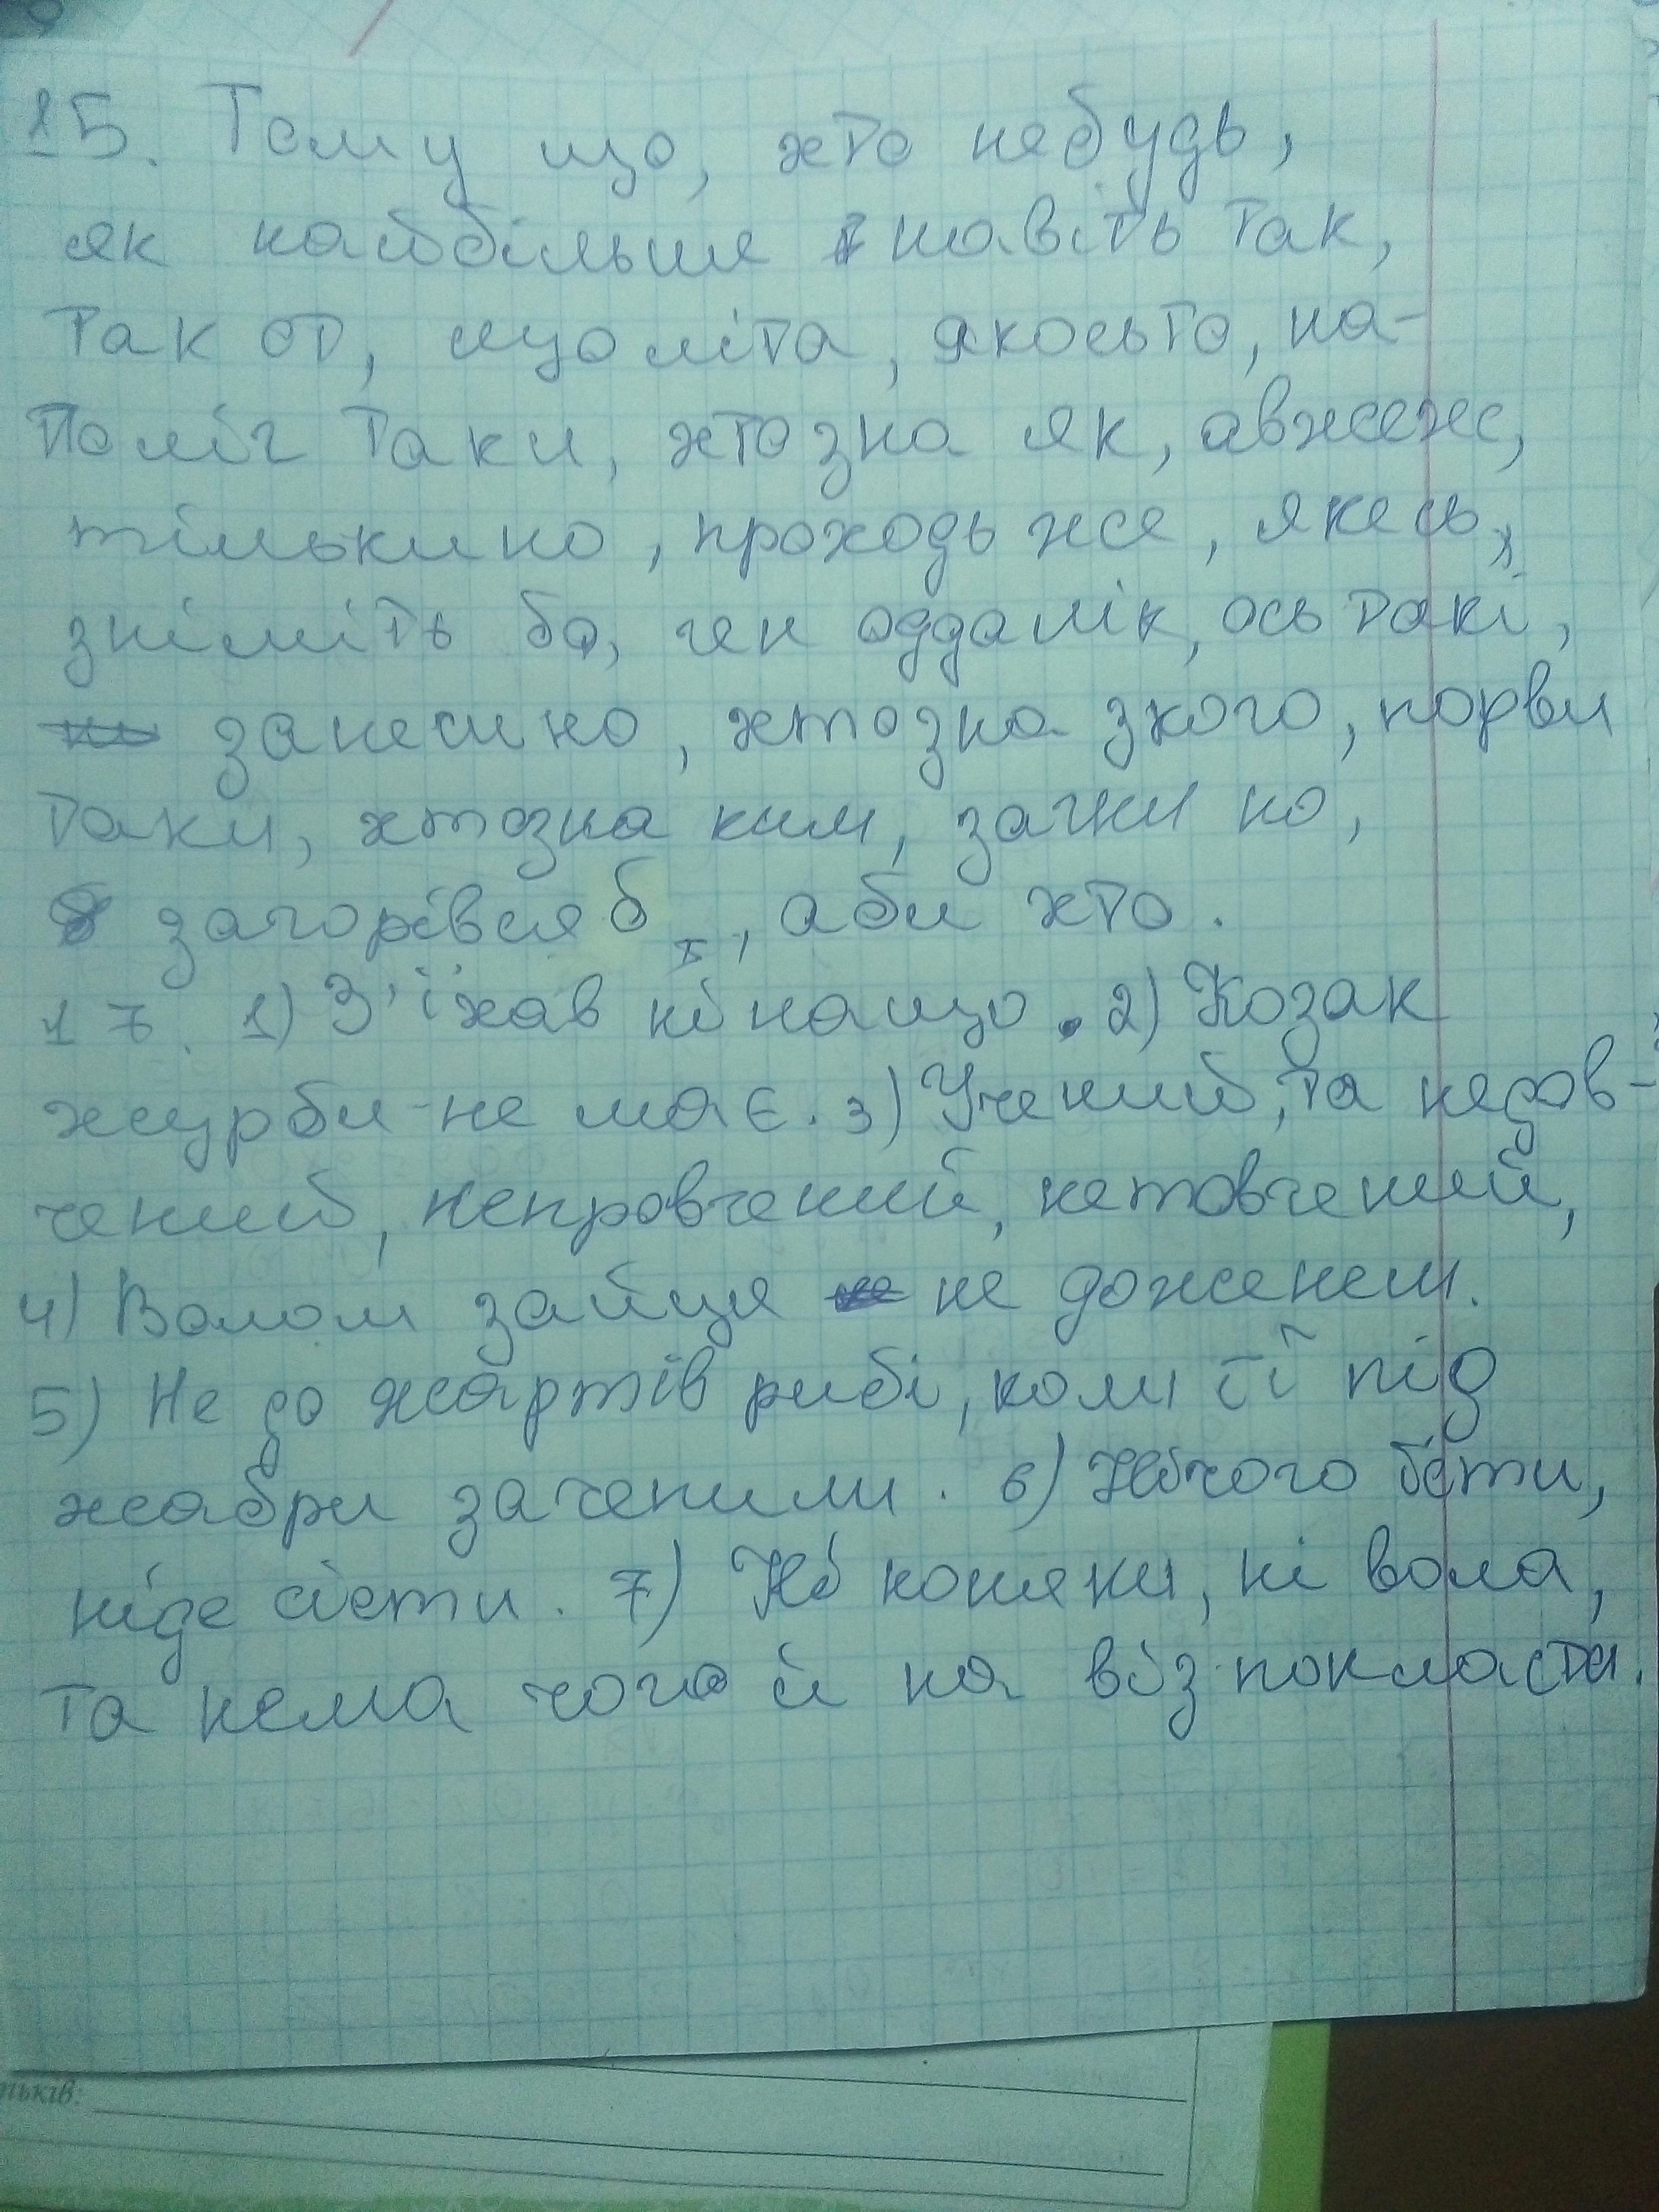 15. Тому що, хто небудь,
як найбільше навіть так,
так от, що літа, якось то, на-
поліг таки, хтозна як, авжеж,
тільки но, проходь же, якесь,
зніміть бо, ген оддалік, ось такі,
занеси но, хтозна зкого, порви
таки, хтозна ким, загни но,
загорівся б, аби хто.
17. 1) З'їхав нінащо. 2) Козак
журби не має. 3) Учений, та недов-
чений, непровчений, нетовчений,
4) Волом зайця не доженеш.
5) Не до жартів рибі, коли її під
жабри зачепили. 6) Нічого їсти,
ніде сісти. 7) Ні коняки, ні вола,
та нема чого й на віз покласти.
ньків: